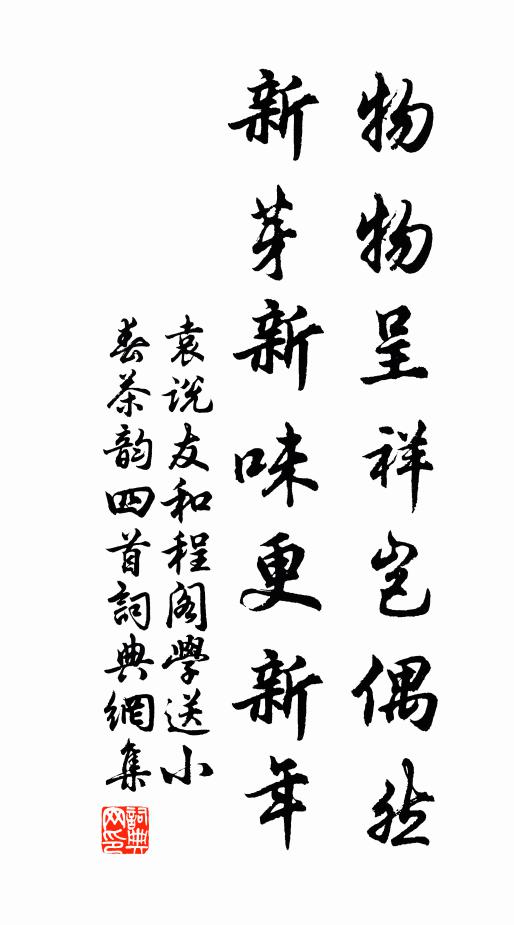 物物呈祥岂偶然
新芽新味更新年
袁说友和程阁學送小
春茶韵四首詞典網集
詞典网印